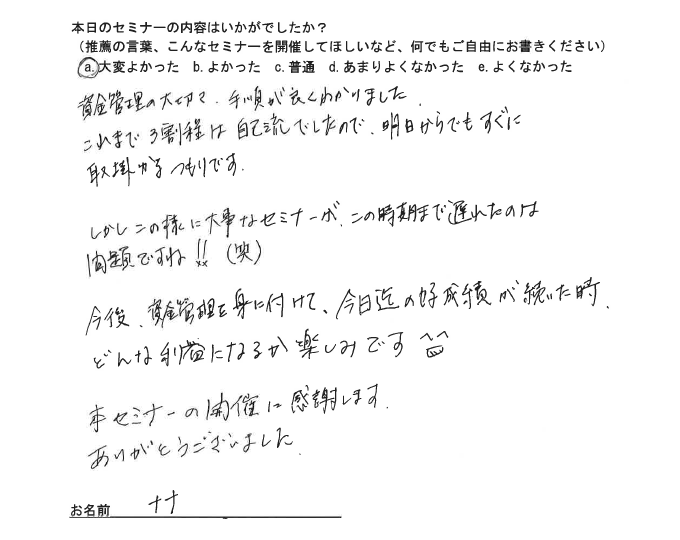 本日のセミナーの内容はいかがでしたか？
（推薦の言葉、こんなセミナーを開催してほしいなど、何でもご自由にお書きください）
a.大変よかった b.よかった c.普通 d.あまりよくなかった e.よくなかった
資金管理の大切さ、手順が良くわかりました.
これまで3割程は自己流でしたので、明日からでもすぐに
取掛かるつもりです.
しかしこの様に大事なセミナーが、この時期まで遅れたのは
問題ですね!!（笑）
今後、資金管理を身に付けて、今日迄の好成績が続いた時、
どんな利益になるか楽しみです ^^
本セミナーの開催に感謝します.
ありがとうございました.
お名前 ナナ